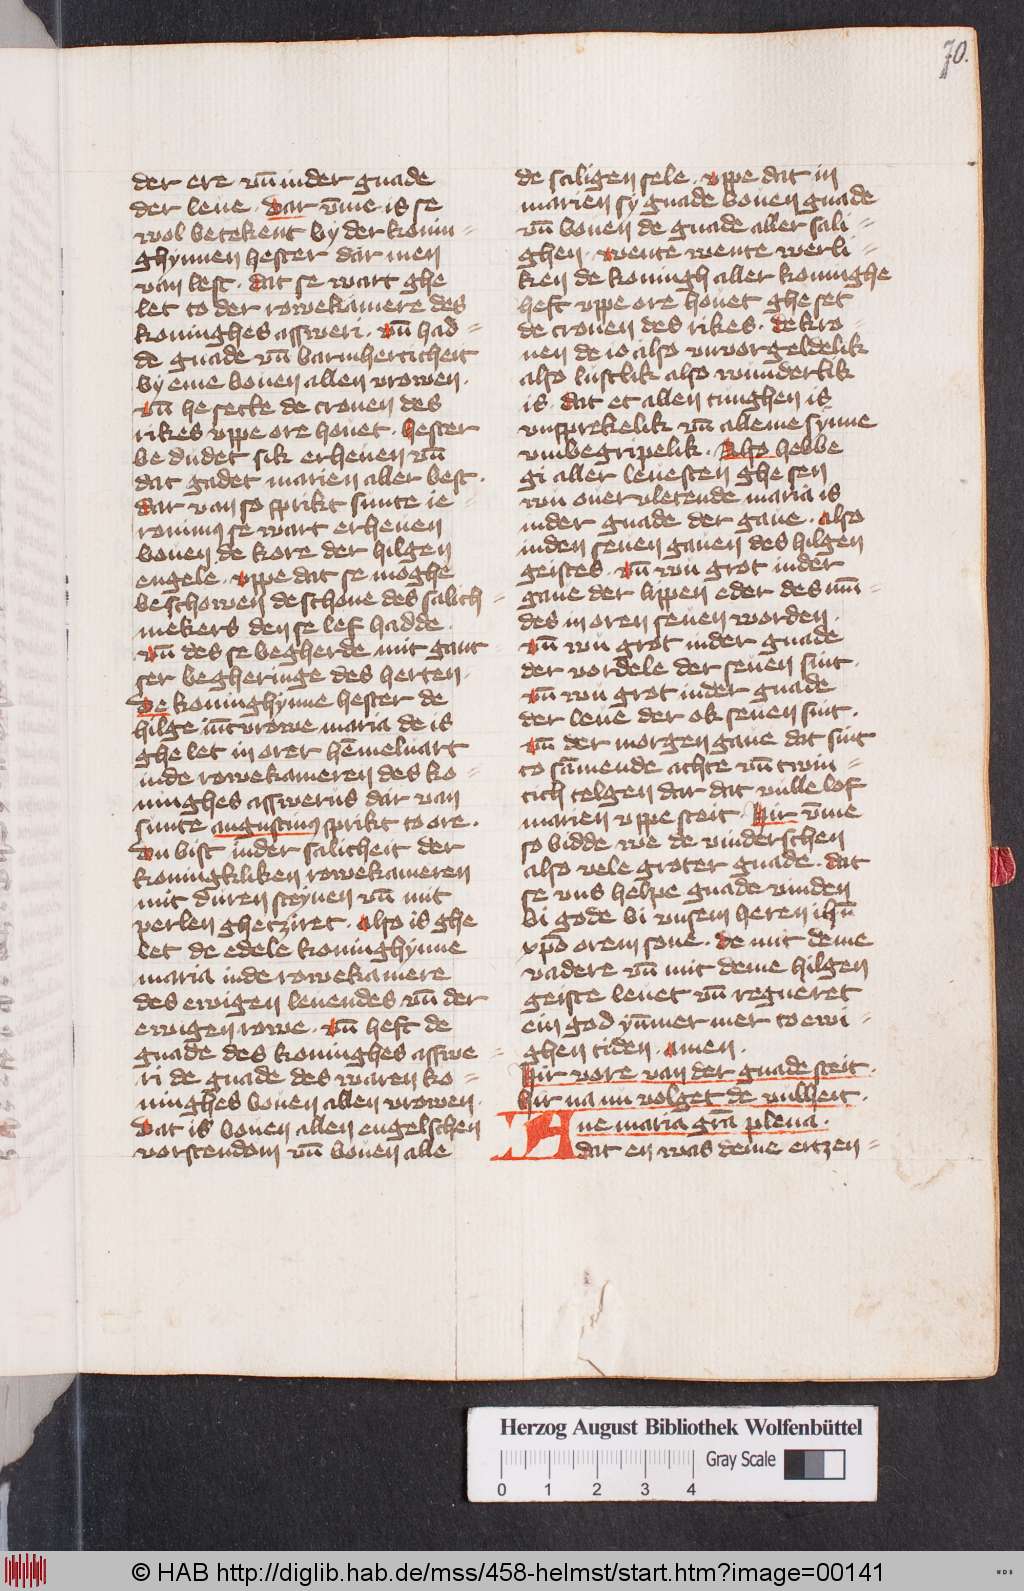 70.
der ere vn̄ in der gnade
der leue. Dar v̄me is se
wol betekent by der konin-
ghynnen hester dar men
van lest. dat se wart ghe
let to der rowekamere des
koninghes assweri. vn̄ had-
de gnade vn̄ barmherticheit
by eme bouen allen vrowen.
vn̄ he sette de cronen des
rikes vppe ore houet. hester
be dudet sik erheuen vn̄
dat gadet marien aller best.
dar van so sprikt sunte ie-
ronimus se wart erheuen
bouen de kore der hilgen
engele. vppe dat se moghe
beschowen de schone des salich-
mekers den se lef hadde.
vn̄ des se begherde mit gant-
ser begheringe des herten.
De koninghynne hester de
hilge iūcvrowe maria de is
ghe let in orer hēmeluart
in de rowekameren des ko-
ninghes asswerus dar van
sunte augustinus sprikt to ore.
Du bist in der salicheit der
koningkliken rowekameren
mit duren steynen vn̄ mit
perlen ghetziret. Also is ghe
let de edele koninghynne
maria in de rowekamere
des ewigen leuendes vn̄ der
ewigen rowe. vn̄ heft de
gnade des koninghes asswe-
ri de gnade des waren ko-
ninghes bouen allen vrowen.
Dat is bouen allen engelschen
vorstendom vn̄ bouen alle
de saligen sele. vppe dat in
marien sy gnade bouen gnade
vn̄ bouen de gnade aller sali-
ghen. wente wente werli-
ken de koningh aller koninghe
heft vppe ore houet ghe set
de cronen des rikes. de kro-
nen de io also vnvorgeldelik
also lustlik also wunderlik
is. dat et allen tunghen is
vnsprekelik vn̄ alleme synne
vnbegripelik. Also hebbe
gi aller leuesten ghe sen
wu ouer vletende maria is
in der gnade der gaue. also
in den seuen gauen des hilgen
geistes. vn̄ wu grot in der
gaue der lippen eder des mun-
des in oren seuen worden.
vn̄ wu grot in der gnade
der vordele der seuen sint.
vn̄ wu grot in der gnade
der leue der ok seuen sint.
vn̄ der morgen gaue dat sint
to sāmende achte vn̄ twin-
tich telgen dar dat vulle lof
marien vppe steit. Hir v̄me
so bidde we de vinderschen
also vele groter gnade. dat
se vns helpe gnade vinden
bi gode bi vnsem heren ihū
xp̄o orem sone. de mit deme
vadere vn̄ mit deme hilgen
geiste leuet vn̄ regneret
ein god ȳmer mer to ewi-
ghen tiden. amen.
Hir vore van der gnade steit.
hir na nu volget de vulheit.
Aue maria grā plena.
dat en was deme ertzen-
Herzog August Bibliothek Wolfenbüttel
Gray Scale
0 1 2 3 4
© HAB http://diglib.hab.de/mss/458-helmst/start.htm?image=00141
WDB